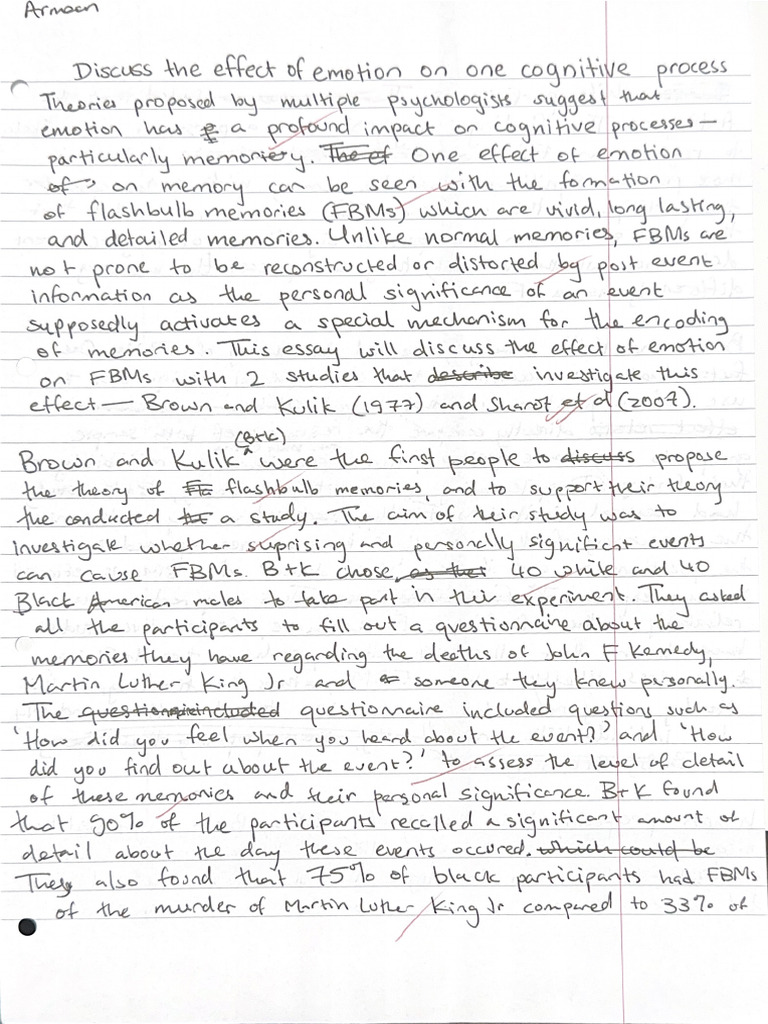 Armaan
Discuss the effect of emotion on one cognitive process
Theories proposed by multiple psychologists suggest that
emotion has a profound impact on cognitive processes —
particularly memory. One effect of emotion
on memory can be seen with the formation
of flashbulb memories (FBMs) which are vivid, long lasting,
and detailed memories. Unlike normal memories, FBMs are
not prone to be reconstructed or distorted by post event
information as the personal significance of an event
supposedly activates a special mechanism for the encoding
of memories. This essay will discuss the effect of emotion
on FBMs with 2 studies that describe investigate this
effect — Brown and Kulik (1977) and Sharot et al (2007).
(B+K)
Brown and Kulik were the first people to discuss propose
the theory of flashbulb memories, and to support their theory
the conducted a study. The aim of their study was to
investigate whether suprising and personally significant events
can cause FBMs. B+K chose 40 white and 40
Black American males to take part in their experiment. They asked
all the participants to fill out a questionnaire about the
memories they have regarding the deaths of John F Kennedy,
Martin Luther King Jr and someone they knew personally.
The questionnaire included questions such as
'How did you feel when you heard about the event?' and 'How
did you find out about the event?' to assess the level of detail
of these memories and their personal significance. B+K found
that 90% of the participants recalled a significant amount of
detail about the day these events occured. which could be
They also found that 75% of black participants had FBMs
of the murder of Martin Luther King Jr compared to 33% of